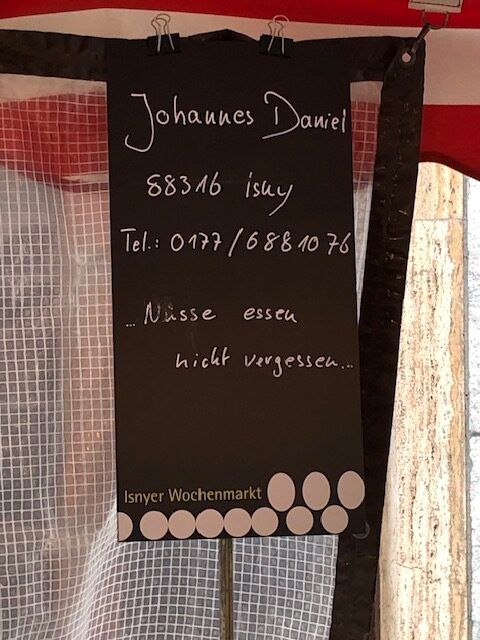 Johannes Daniel
88316 isny
Tel.: 0177/6881076
... Nüsse essen
nicht vergessen...
Isnyer Wochenmarkt